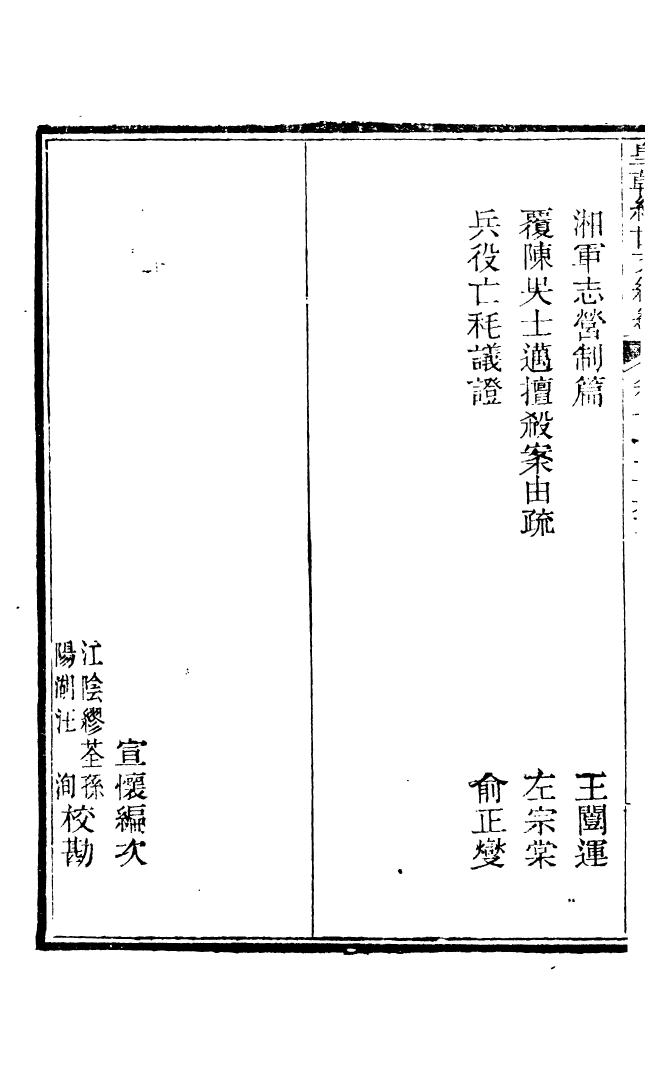 皇朝經世文續編
湘軍志營制篇 王闓運
覆陳吳士邁擅殺案由疏 左宗棠
兵役亡耗議證 俞正燮
宣懷編次
江陰繆荃孫
陽湖汪洵
校勘